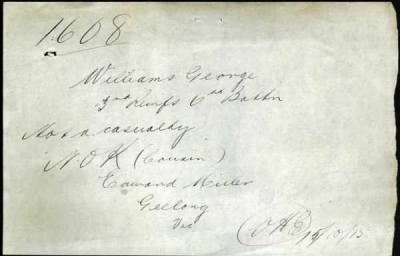 1608
Williams George
3rd Reinfs 6th Battn
Not a casualty
N.O.K (Cousin)
Edward Miller
Geelong
Vic
15/10/15